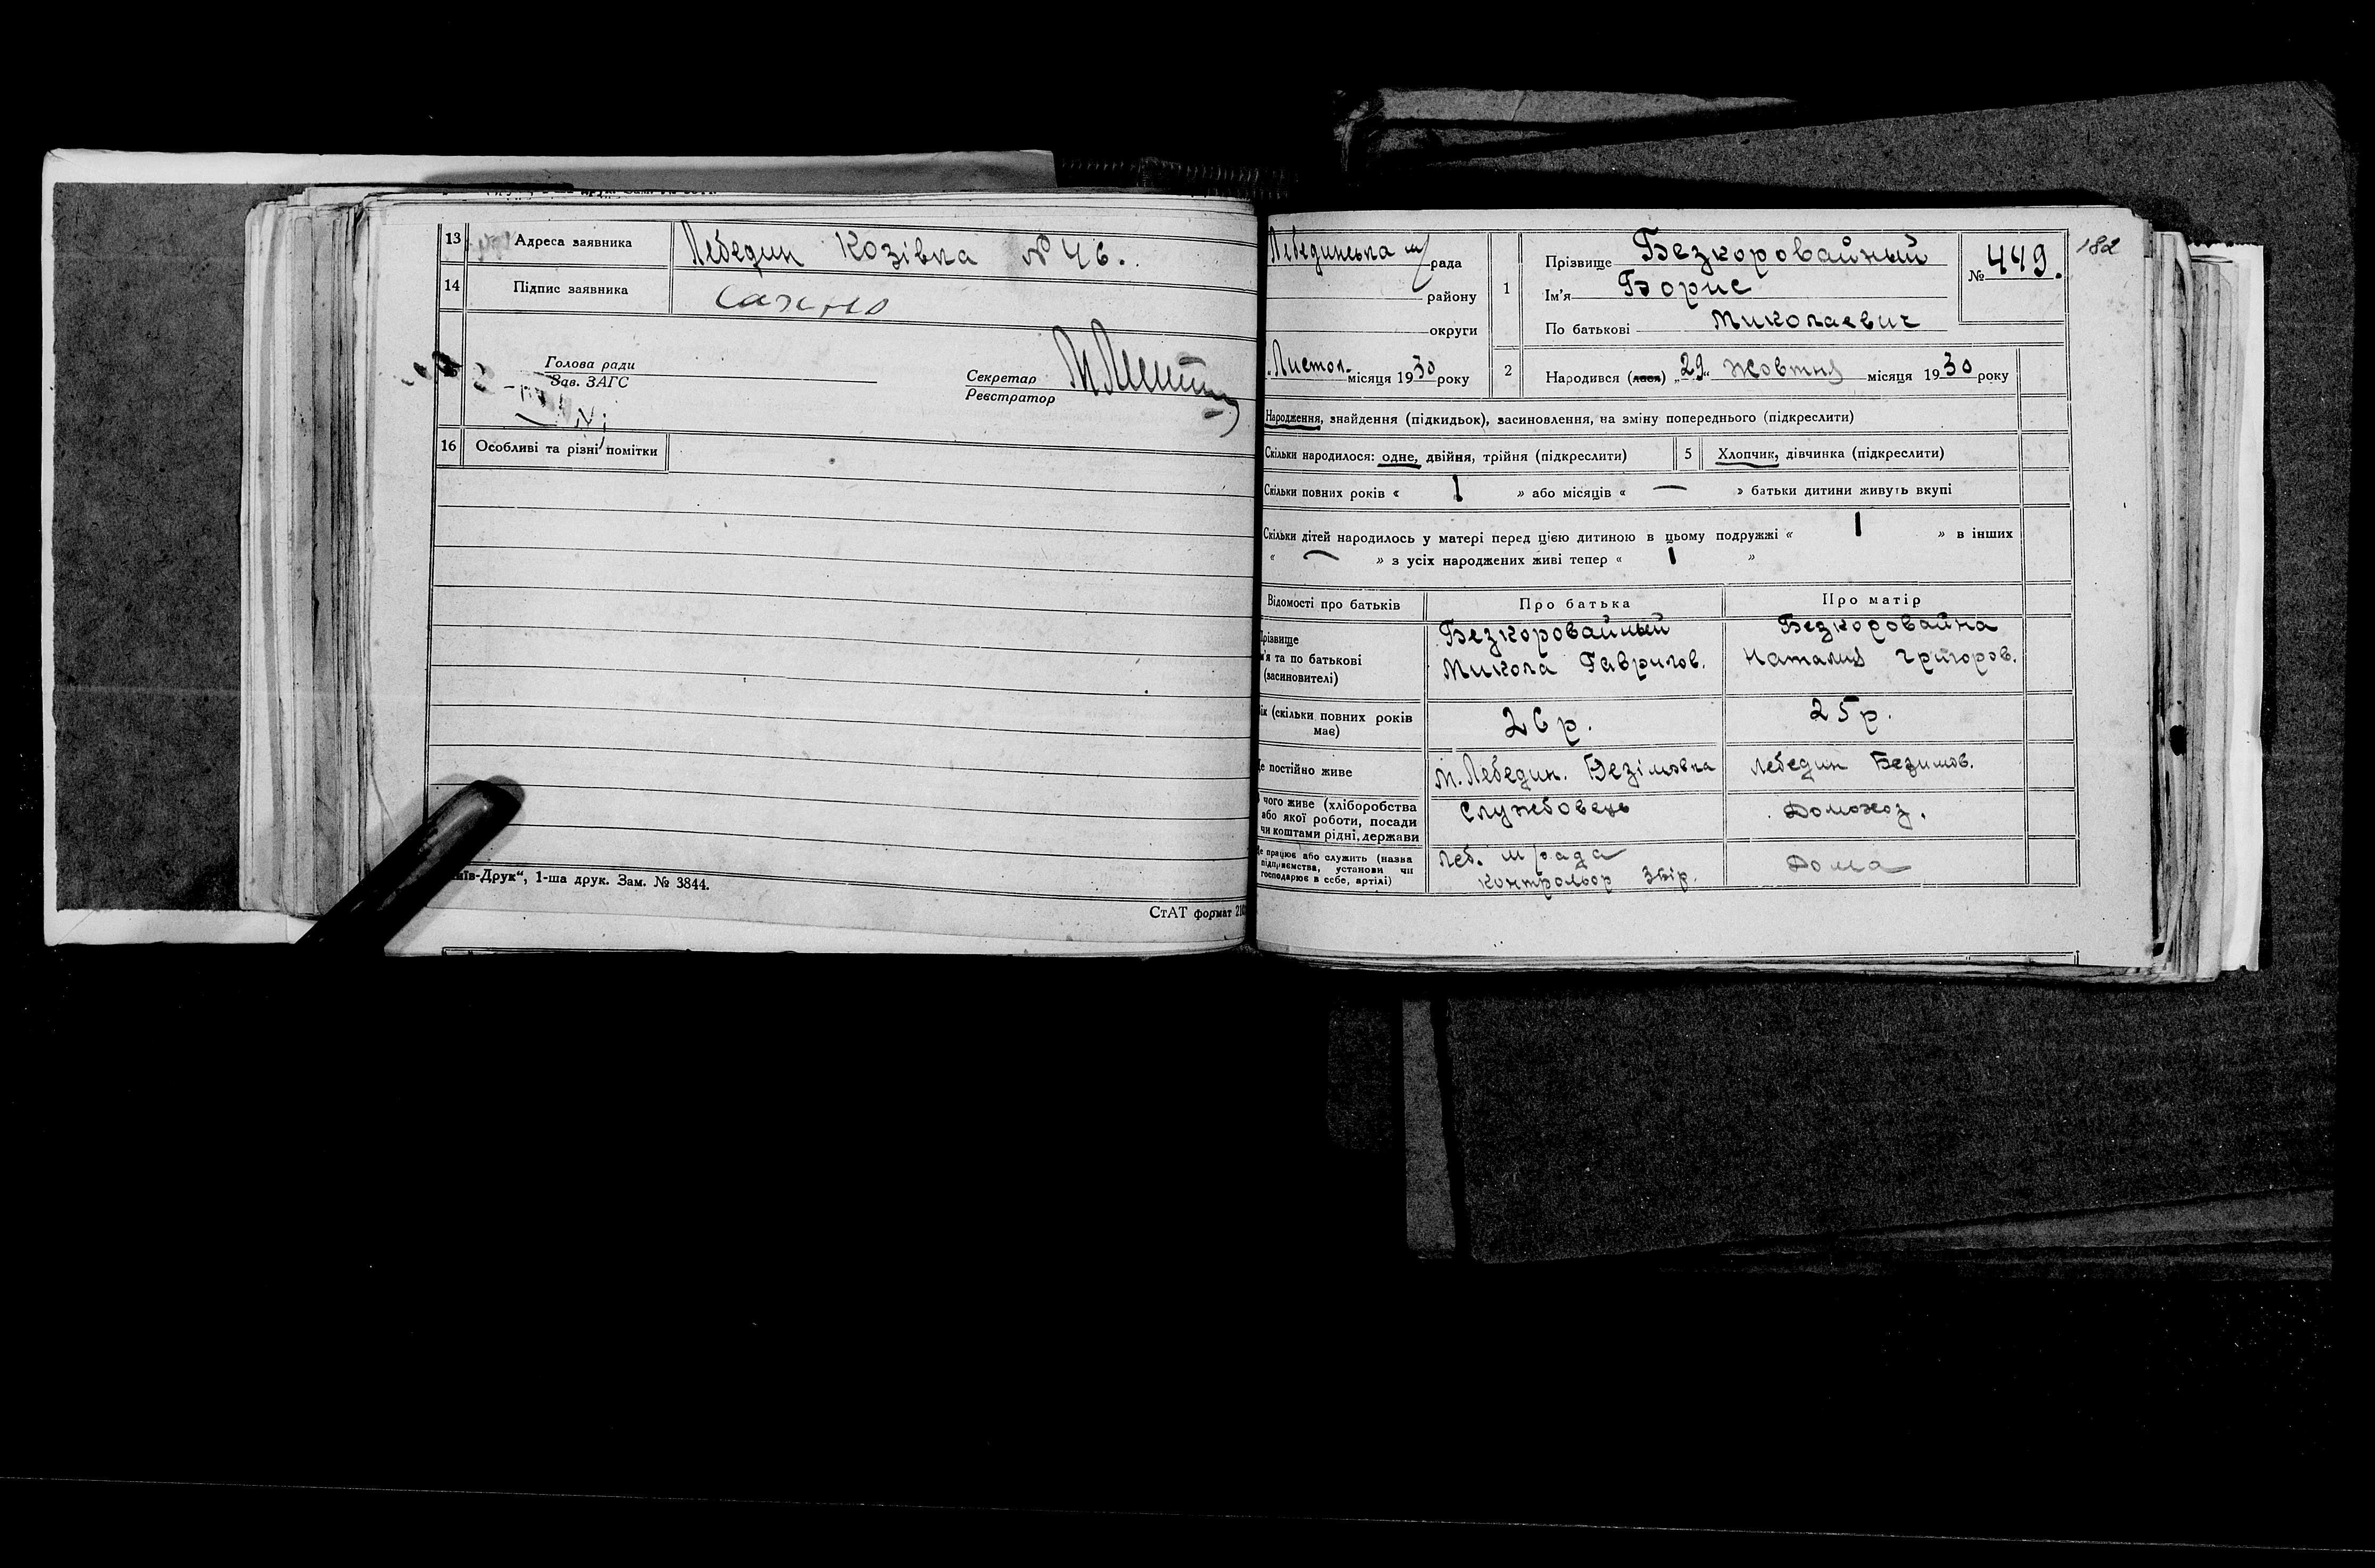 13 Адреса заявника Лебедин Козівка № 46.
14 Підпис заявника
Голова ради
Зав. ЗАГС
Секретар
Реєстратор
16 Особливі та різні помітки
їв-Друк“, 1-ша друк. Зам. № 3844.
СтАТ формат
182
Лебединська м/рада
району
округи
Листоп. місяця 1930 року
1 Прізвище Безкоровайный
Ім'я Борис
По батькові Миколаевич
№ 449.
2 Народився (лася) „29“ жовтня місяця 1930 року
Народження, знайдення (підкидьок), засиновлення, на зміну попереднього (підкреслити)
Скільки народилося: одне, двійня, трійня (підкреслити) 5 Хлопчик, дівчинка (підкреслити)
Скільки повних років « 1 » або місяців « — » батьки дитини живуть вкупі
Скільки дітей народилось у матері перед цією дитиною в цьому подружжі « 1 » в інших
« — » з усіх народжених живі тепер « 1 »
Відомості про батьків Про батька Про матір
різвище
м'я та по батькові
(засиновителі)
Безкоровайный
Микола Гаврилов.
Безкоровайна
Наталия Григоров.
ік (скільки повних років
має)
26 р.
25 р.
е постійно живе м. Лебедин. Безімовка Лебедин Безимов.
чого живе (хліборобства
або якої роботи, посади
чи коштами рідні, держави
Службовець
Домохоз.
е працює або служить (назва
підприємства, установи чи
господарює в себе, артілі)
Леб. м/рада
контрольор збір.
Дома